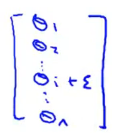 θ₁
θ₂
⋮
θᵢ + ε
⋮
θₙ